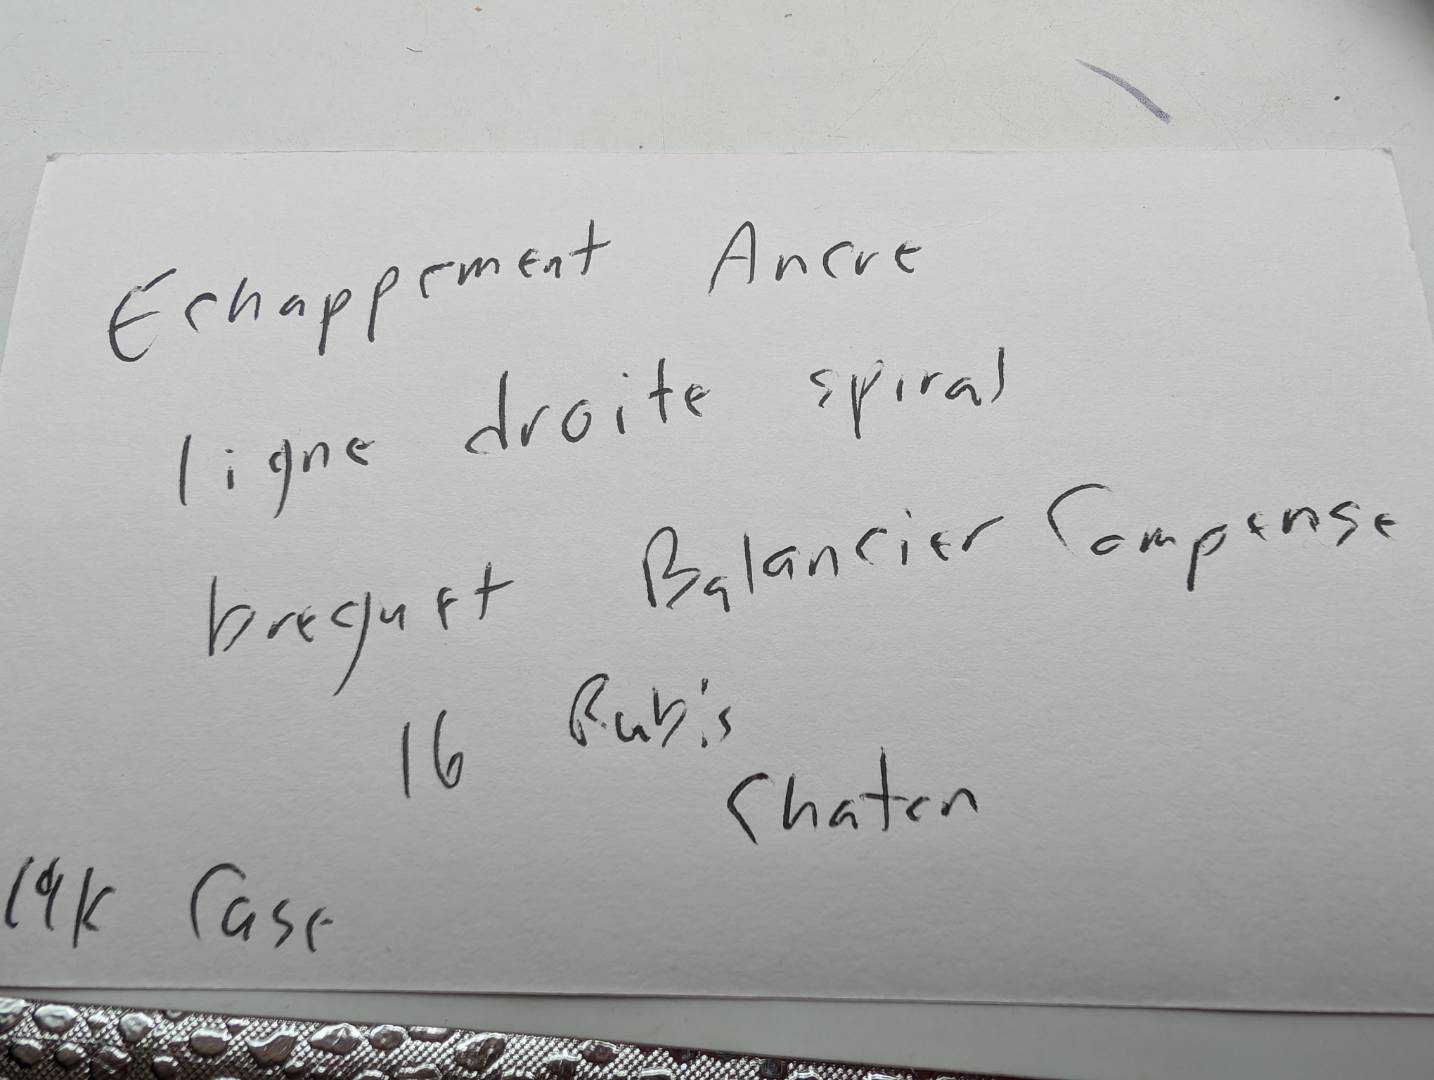 Echappement Ancre
ligne droite spiral
breguet Balancier Compense
16 Rubis
Chaton
14k Case